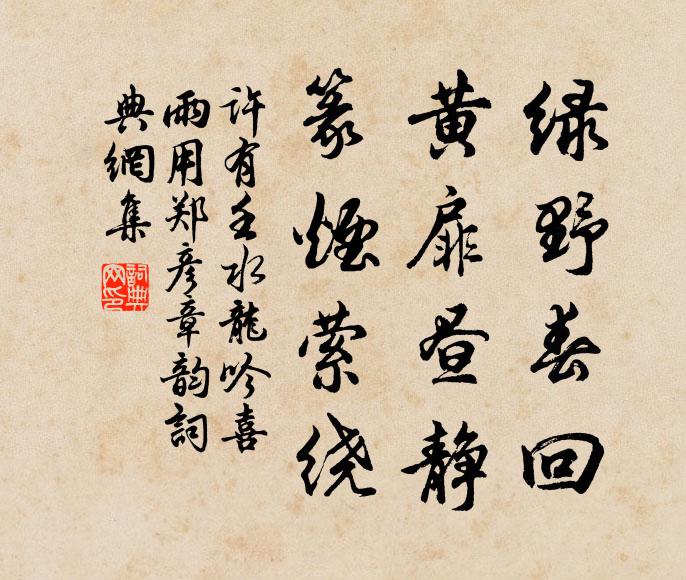 绿野春回
黄扉昼静
篆烟萦绕
许有壬水龍吟喜
雨用郑彦章韵詞
典網集
詞典
网印